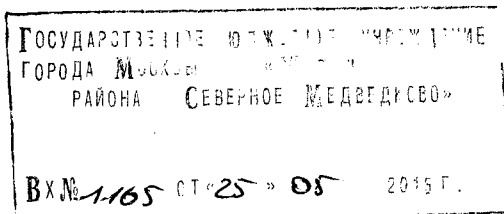 ГОСУДАРСТВЕННОЕ УЧРЕЖДЕНИЕ
ГОРОДА МОСКВЫ
РАЙОНА СЕВЕРНОЕ МЕДВЕДКОВО»
ВХ№ 1-165 ОТ «25» 05 2015 Г.